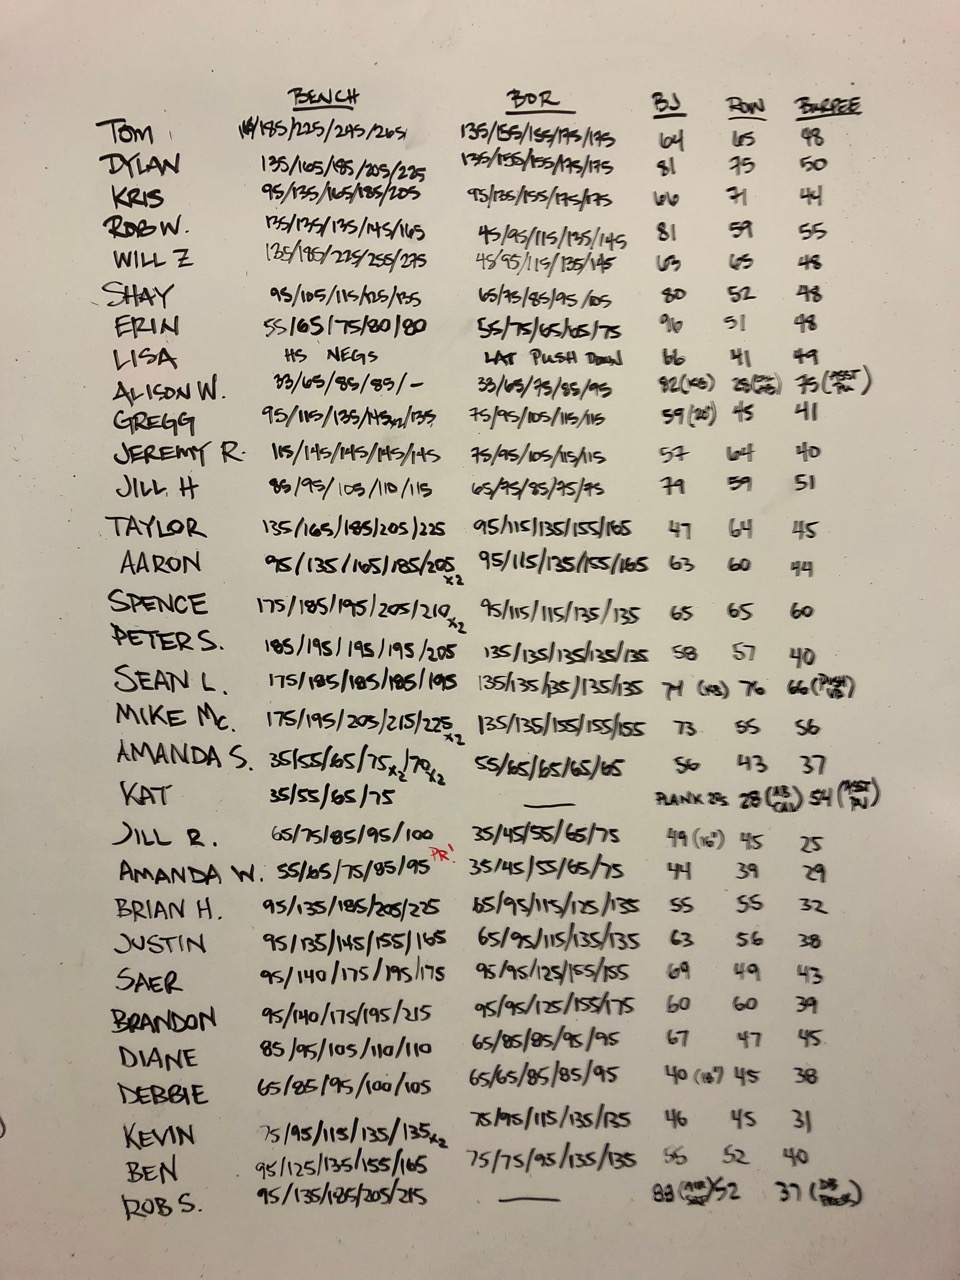 BENCH BOR BJ ROW BURPEE
TOM /185/225/245/265 135/155/155/175/175 64 65 48
DYLAN 135/165/185/205/225 135/155/155/175/175 81 75 50
KRIS 95/135/165/185/205 95/135/155/175/175 66 71 44
ROB W. 135/135/135/145/165 45/95/115/135/145 81 59 55
WILL Z 135/185/225/255/275 45/95/115/135/145 63 65 48
SHAY 95/105/115/125/135 65/75/85/95/105 80 52 48
ERIN 55/65/75/80/80 55/75/65/65/75 96 51 48
LISA HS NEGS LAT PUSH DOWN 66 41 49
ALISON W. 33/65/85/85/- 33/65/75/85/95 82 (KB) 28 75
GREGG 95/115/135/145x2/135 75/95/105/115/115 59 (20") 45 41
JEREMY R. 115/145/145/145/145 75/95/105/115/115 57 64 40
JILL H 85/95/105/110/115 65/75/85/75/75 79 59 51
TAYLOR 135/165/185/205/225 95/115/135/155/165 47 64 45
AARON 95/135/165/185/205x2 95/115/135/155/165 63 60 44
SPENCE 175/185/195/205/210x2 95/115/115/135/135 65 65 60
PETER S. 185/195/195/195/205 135/135/135/135/135 58 57 40
SEAN L. 175/185/185/185/195 135/135/135/135/135 74 (KB) 76 66 (PUSH
MIKE MC. 175/195/205/215/225x2 135/135/155/155/155 73 55 56
AMANDA S. 35/55/65/75x2/70x2 55/65/65/65/65 56 43 37
KAT 35/55/65/75 — PLANK 28 (AB 54
JILL R. 65/75/85/95/100 35/45/55/65/75 49 (16") 45 25
AMANDA W. 55/65/75/85/95 PR! 35/45/55/65/75 44 39 29
BRIAN H. 95/135/185/205/225 65/95/115/125/135 55 55 32
JUSTIN 95/135/145/155/165 65/95/115/135/135 63 56 38
SAER 95/140/175/195/175 95/95/125/155/155 69 49 43
BRANDON 95/140/175/195/215 95/95/125/155/175 60 60 39
DIANE 85/95/105/110/110 65/85/85/95/95 67 47 45
DEBBIE 65/85/95/100/105 65/65/85/85/95 40 (16") 45 38
KEVIN 75/95/115/135/135x2 75/95/115/135/135 46 45 31
BEN 95/125/135/155/165 75/75/95/135/135 55 52 40
ROB S. 95/135/185/205/215 — 88 52 37 (DB